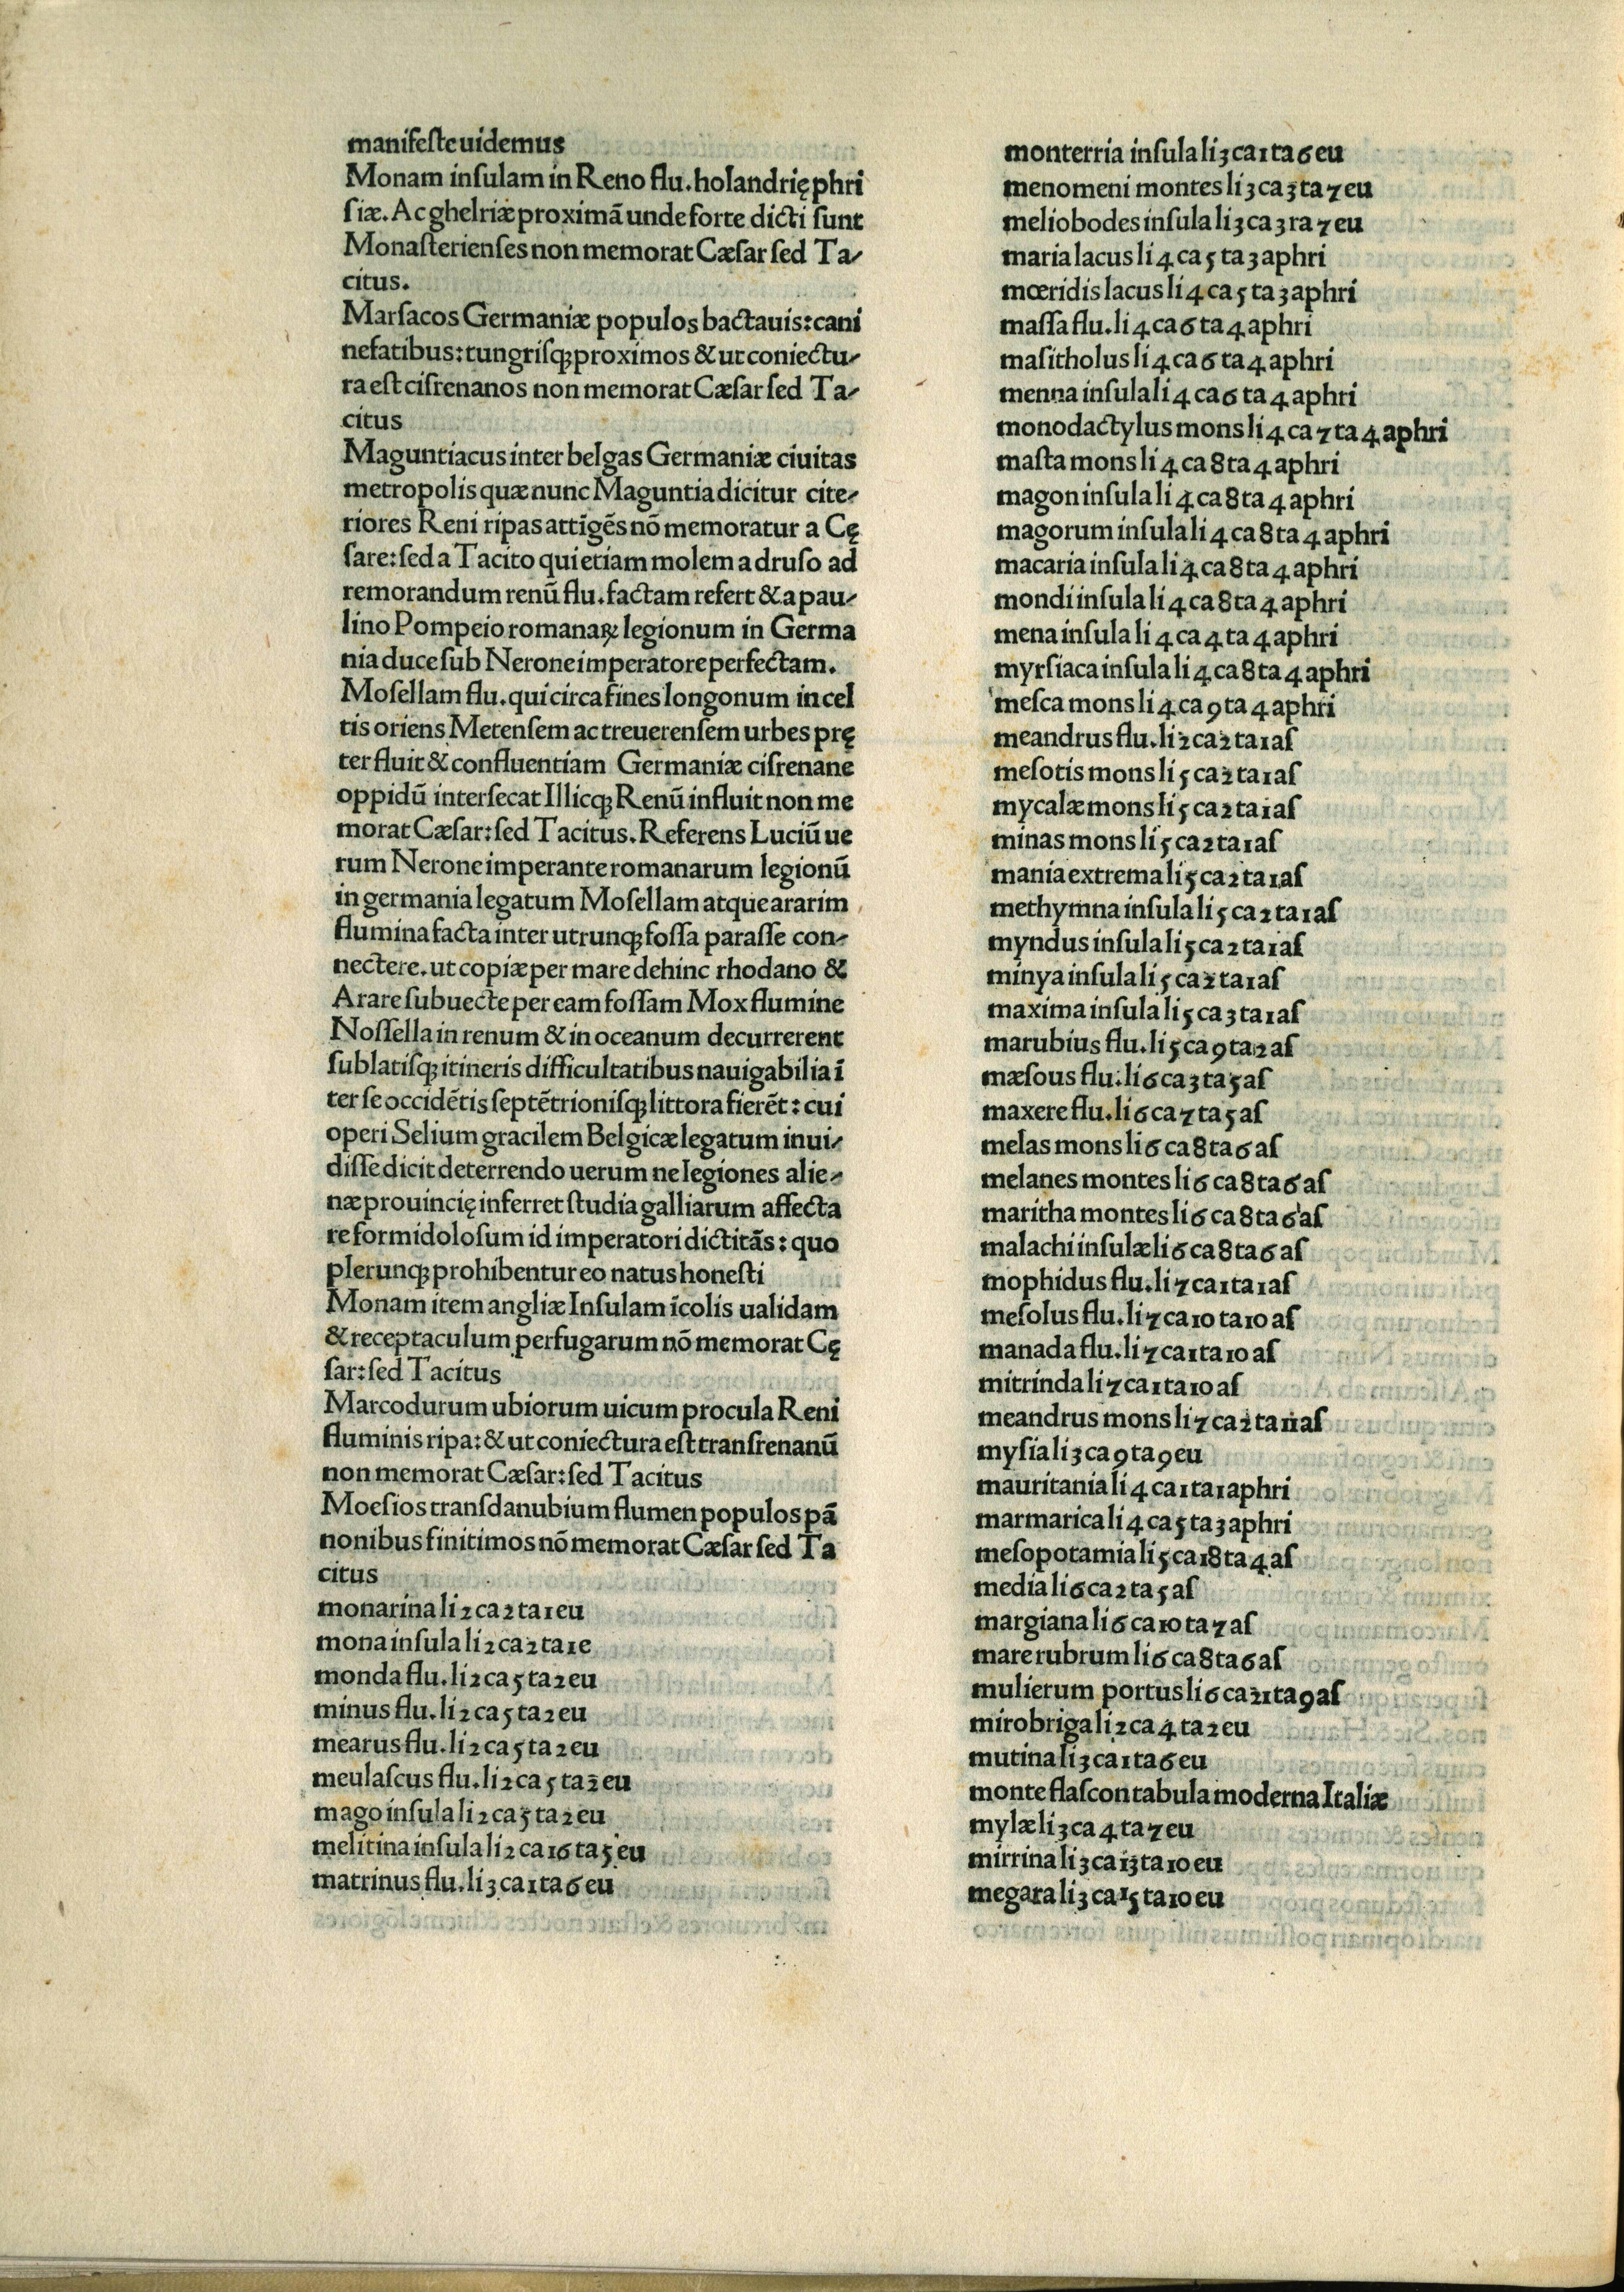 manifeste uidemus
Monam insulam in Reno flu. holandrię phri
siæ. Ac ghelriæ proximā unde forte dicti sunt
Monasterienses non memorat Cæsar sed Ta⸗
citus.
Marsacos Germaniæ populos bactauis: cani
nefatibus: tungrisqꝫ proximos & ut coniectu⸗
ra est cisrenanos non memorat Cæsar sed Ta⸗
citus
Maguntiacus inter belgas Germaniæ ciuitas
metropolis quæ nunc Maguntia dicitur cite⸗
riores Reni ripas attīgēs nō memoratur a Cę
sare: sed a Tacito qui etiam molem a druso ad
remorandum renū flu. factam refert & a pau⸗
lino Pompeio romanaꝝ legionum in Germa
nia duce sub Nerone imperatore perfectam.
Mosellam flu. qui circa fines longonum in cel
tis oriens Metensem ac treuerensem urbes prę
terfluit & confluentiam Germaniæ cisrenane
oppidū intersecat Illicqꝫ Renū influit non me
morat Cæsar: sed Tacitus. Referens Luciū ue
rum Nerone imperante romanarum legionū
in germania legatum Mosellam atque ararim
flumina facta inter utrunqꝫ fossa parasse con⸗
nectere. ut copiæ per mare dehinc rhodano &
Arare subuecte per eam fossam Mox flumine
Nossella in renum & in oceanum decurrerent
sublatisqꝫ itineris difficultatibus nauigabilia ī
ter se occidētis septētrionisqꝫ littora fierēt: cui
operi Selium gracilem Belgicæ legatum inui⸗
disse dicit deterrendo uerum ne legiones alie⸗
næ prouincię inferret studia galliarum affecta
re formidolosum id imperatori dictitās: quo
plerunqꝫ prohibentur eo natus honesti
Monam item angliæ Insulam īcolis ualidam
& receptaculum perfugarum nō memorat Cę
sar: sed Tacitus
Marcodurum ubiorum uicum procula Reni
fluminis ripa: & ut coniectura est transrenanū
non memorat Cæsar: sed Tacitus
Moesios transdanubium flumen populos pā
nonibus finitimos nō memorat Cæsar sed Ta
citus
monarina li 2 ca 2 ta 1 eu
mona insula li 2 ca 2 ta 1 e
monda flu. li 2 ca 5 ta 2 eu
minus flu. li 2 ca 5 ta 2 eu
mearus flu. li 2 ca 5 ta 2 eu
meulascus flu. li 2 ca 5 ta 2 eu
mago insula li 2 ca 5 ta 2 eu
melitina insula li 2 ca 16 ta 5 eu
matrinus flu. li 3 ca 1 ta 6 eu
monterria insula li 3 ca 1 ta 6 eu
menomeni montes li 3 ca 3 ta 7 eu
meliobodes insula li 3 ca 3 ra 7 eu
maria lacus li 4 ca 5 ta 3 aphri
mœridis lacus li 4 ca 5 ta 3 aphri
massa flu. li 4 ca 6 ta 4 aphri
masitholus li 4 ca 6 ta 4 aphri
menna insula li 4 ca 6 ta 4 aphri
monodactylus mons li 4 ca 7 ta 4 aphri
masta mons li 4 ca 8 ta 4 aphri
magon insula li 4 ca 8 ta 4 aphri
magorum insula li 4 ca 8 ta 4 aphri
macaria insula li 4 ca 8 ta 4 aphri
mondi insula li 4 ca 8 ta 4 aphri
mena insula li 4 ca 4 ta 4 aphri
myrsiaca insula li 4 ca 8 ta 4 aphri
mesca mons li 4 ca 9 ta 4 aphri
meandrus flu. li 2 ca 2 ta 1 as
mesotis mons li 5 ca 2 ta 1 as
mycalæ mons li 5 ca 2 ta 1 as
minas mons li 5 ca 2 ta 1 as
mania extrema li 5 ca 2 ta 1 as
methymna insula li 5 ca 2 ta 1 as
myndus insula li 5 ca 2 ta 1 as
minya insula li 5 ca 2 ta 1 as
maxima insula li 5 ca 3 ta 1 as
marubius flu. li 5 ca 9 ta 2 as
mæsous flu. li 6 ca 3 ta 5 as
maxere flu. li 6 ca 7 ta 5 as
melas mons li 6 ca 8 ta 6 as
melanes montes li 6 ca 8 ta 6 as
maritha montes li 6 ca 8 ta 6 as
malachi insulæ li 6 ca 8 ta 6 as
mophidus flu. li 7 ca 1 ta 1 as
mesolus flu. li 7 ca 10 ta 10 as
manada flu. li 7 ca 1 ta 10 as
mitrinda li 7 ca 1 ta 10 as
meandrus mons li 7 ca 2 ta 11 as
mysia li 3 ca 9 ta 9 eu
mauritania li 4 ca 1 ta 1 aphri
marmarica li 4 ca 5 ta 3 aphri
mesopotamia li 5 ca 18 ta 4 as
media li 6 ca 2 ta 5 as
margiana li 6 ca 10 ta 7 as
mare rubrum li 6 ca 8 ta 6 as
mulierum portus li 6 ca 21 ta 9 as
mirobriga li 2 ca 4 ta 2 eu
mutina li 3 ca 1 ta 6 eu
monte flascon tabula moderna Italiæ
mylæ li 3 ca 4 ta 7 eu
mirrina li 3 ca 13 ta 10 eu
megara li 3 ca 15 ta 10 eu